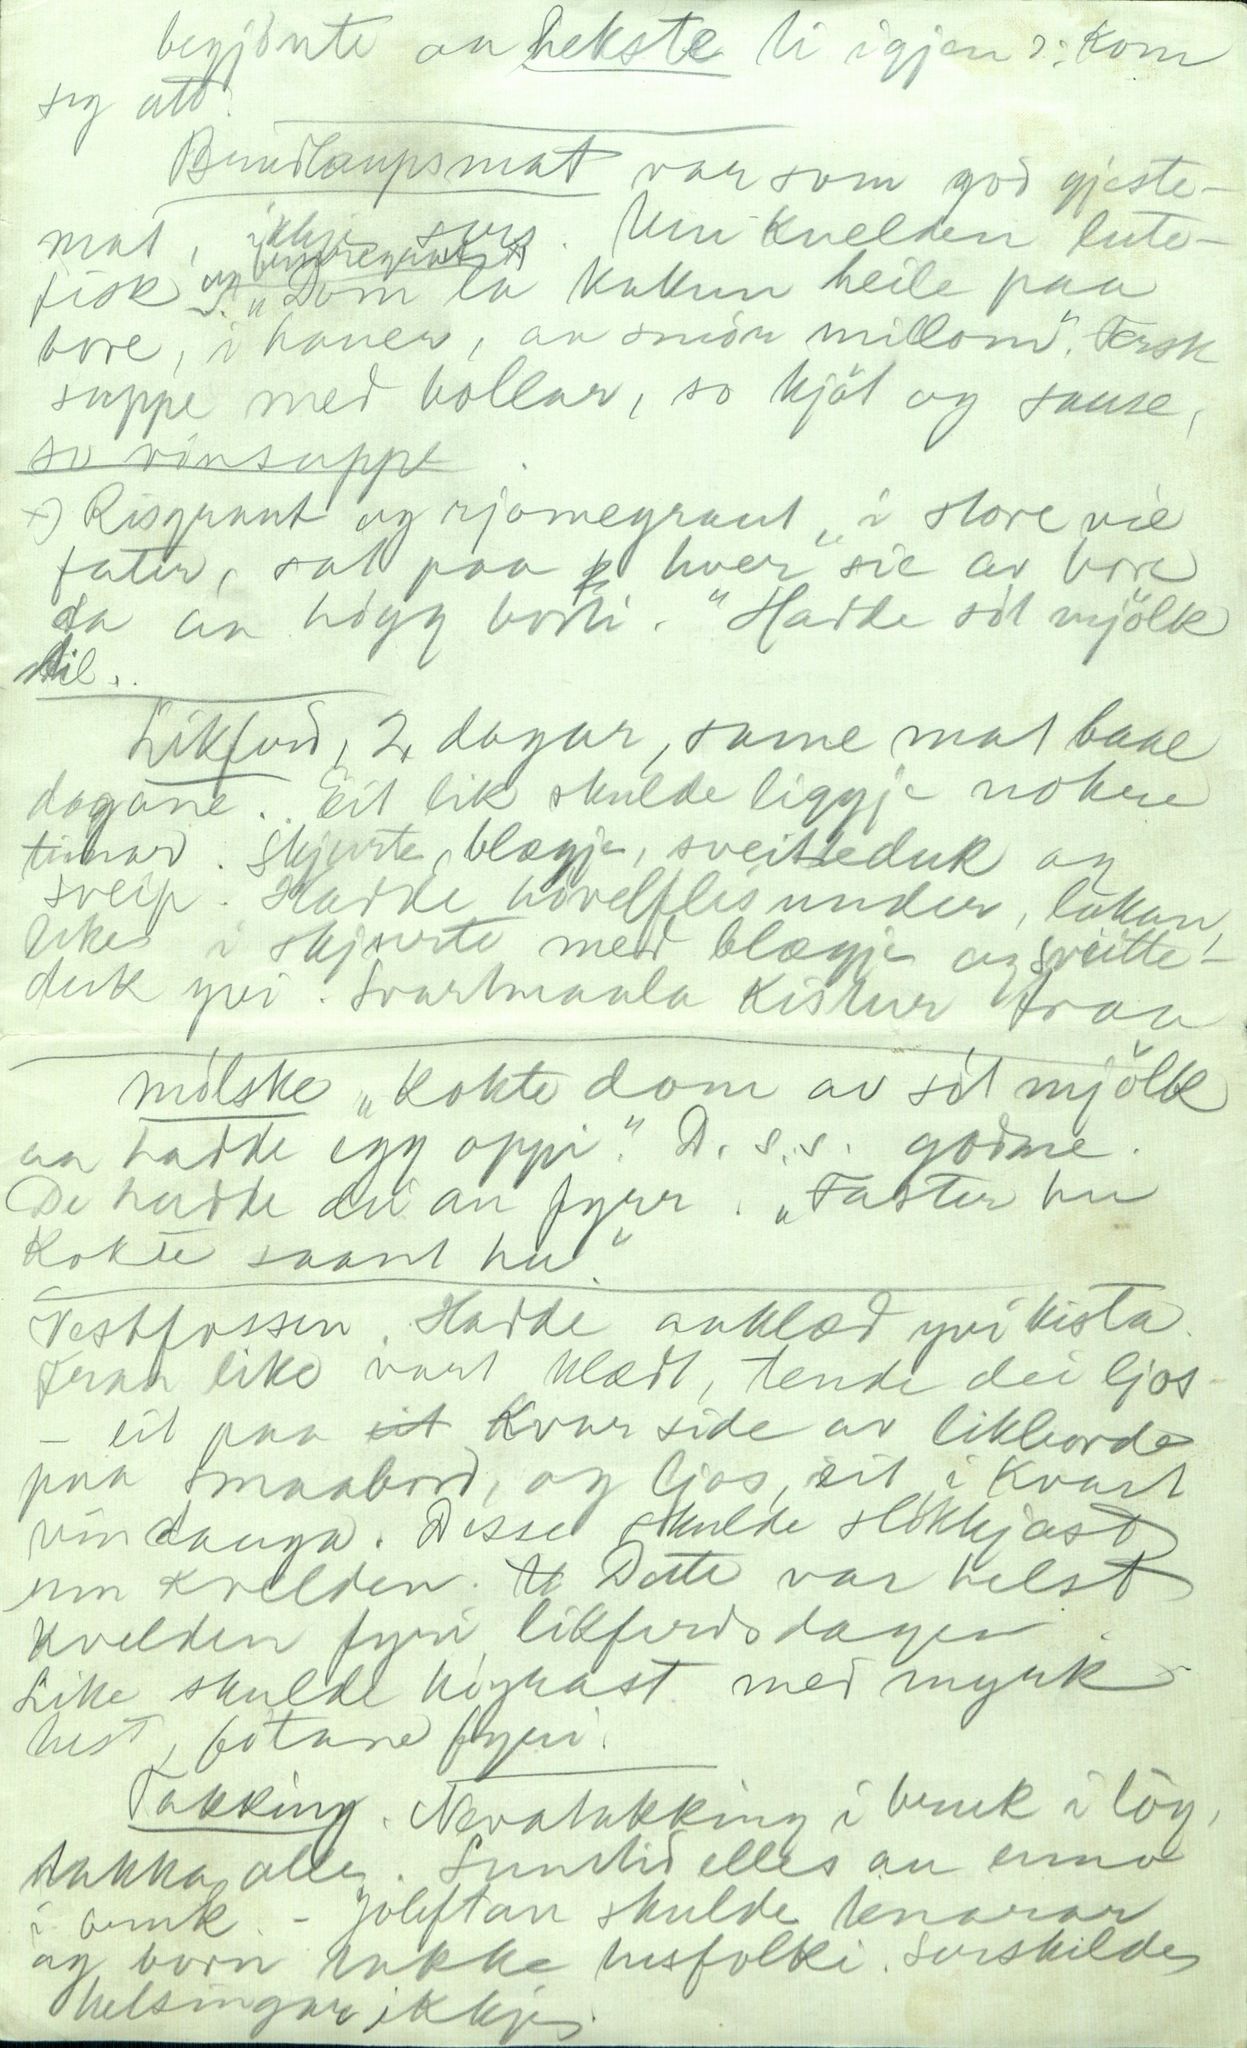 begjönte an hekste ti igjen ɔ: kom
seg att.
Brudlaupsmat var som god gjeste-
mat, ikkje surs. Um kvelden lute-
fisk og smöregraut x) "Dom la kakun heile paa
bore, i hauer, an smör millom". Fersk
suppe med bollar, so kjöt og sause,
so vinsuppe
x) Risgraut og rjomegraut "i store vie
fater, sat paa hver sie av bore
da an högg borti." Hadde söt mjölk
til.
Likferd, 2 dagar, same mat baae
dagane. Eit lik skulde liggje nokre
timar. Skjurte, blægje, sveitteduk og
sveip. Hadde hövelflis under, lakan,
like i skjurte med blægje og sveitte-
duk yvi. Svartmaala kistur fraa
mölske "kokte dom av söt mjölk
an hadde egg oppi". D.s.s. godme.
De hadde dei an fyrr. "Faster hu
kokte saant hu."
Vestfossen. Hadde aaklæd yvi kista.
Fraa like vart klædt, tende dei ljos
- eit paa eit kvar side av likborde
paa smaabord, og ljos, eit i kvart
vindauga. Disse skulde slökkjast
um kvelden. Dette var helst
kvelden fyri likferdsdagen.
Like skulde köyrast med myrk
hest, fötane fyri.
Takking. Nevatakking i bruk i lög,
takka alle. Sumstid elles an enno
i bruk. - Joleftan skulde tenarar
og born takke husfolki. Serskilde
helsingar ikkje.